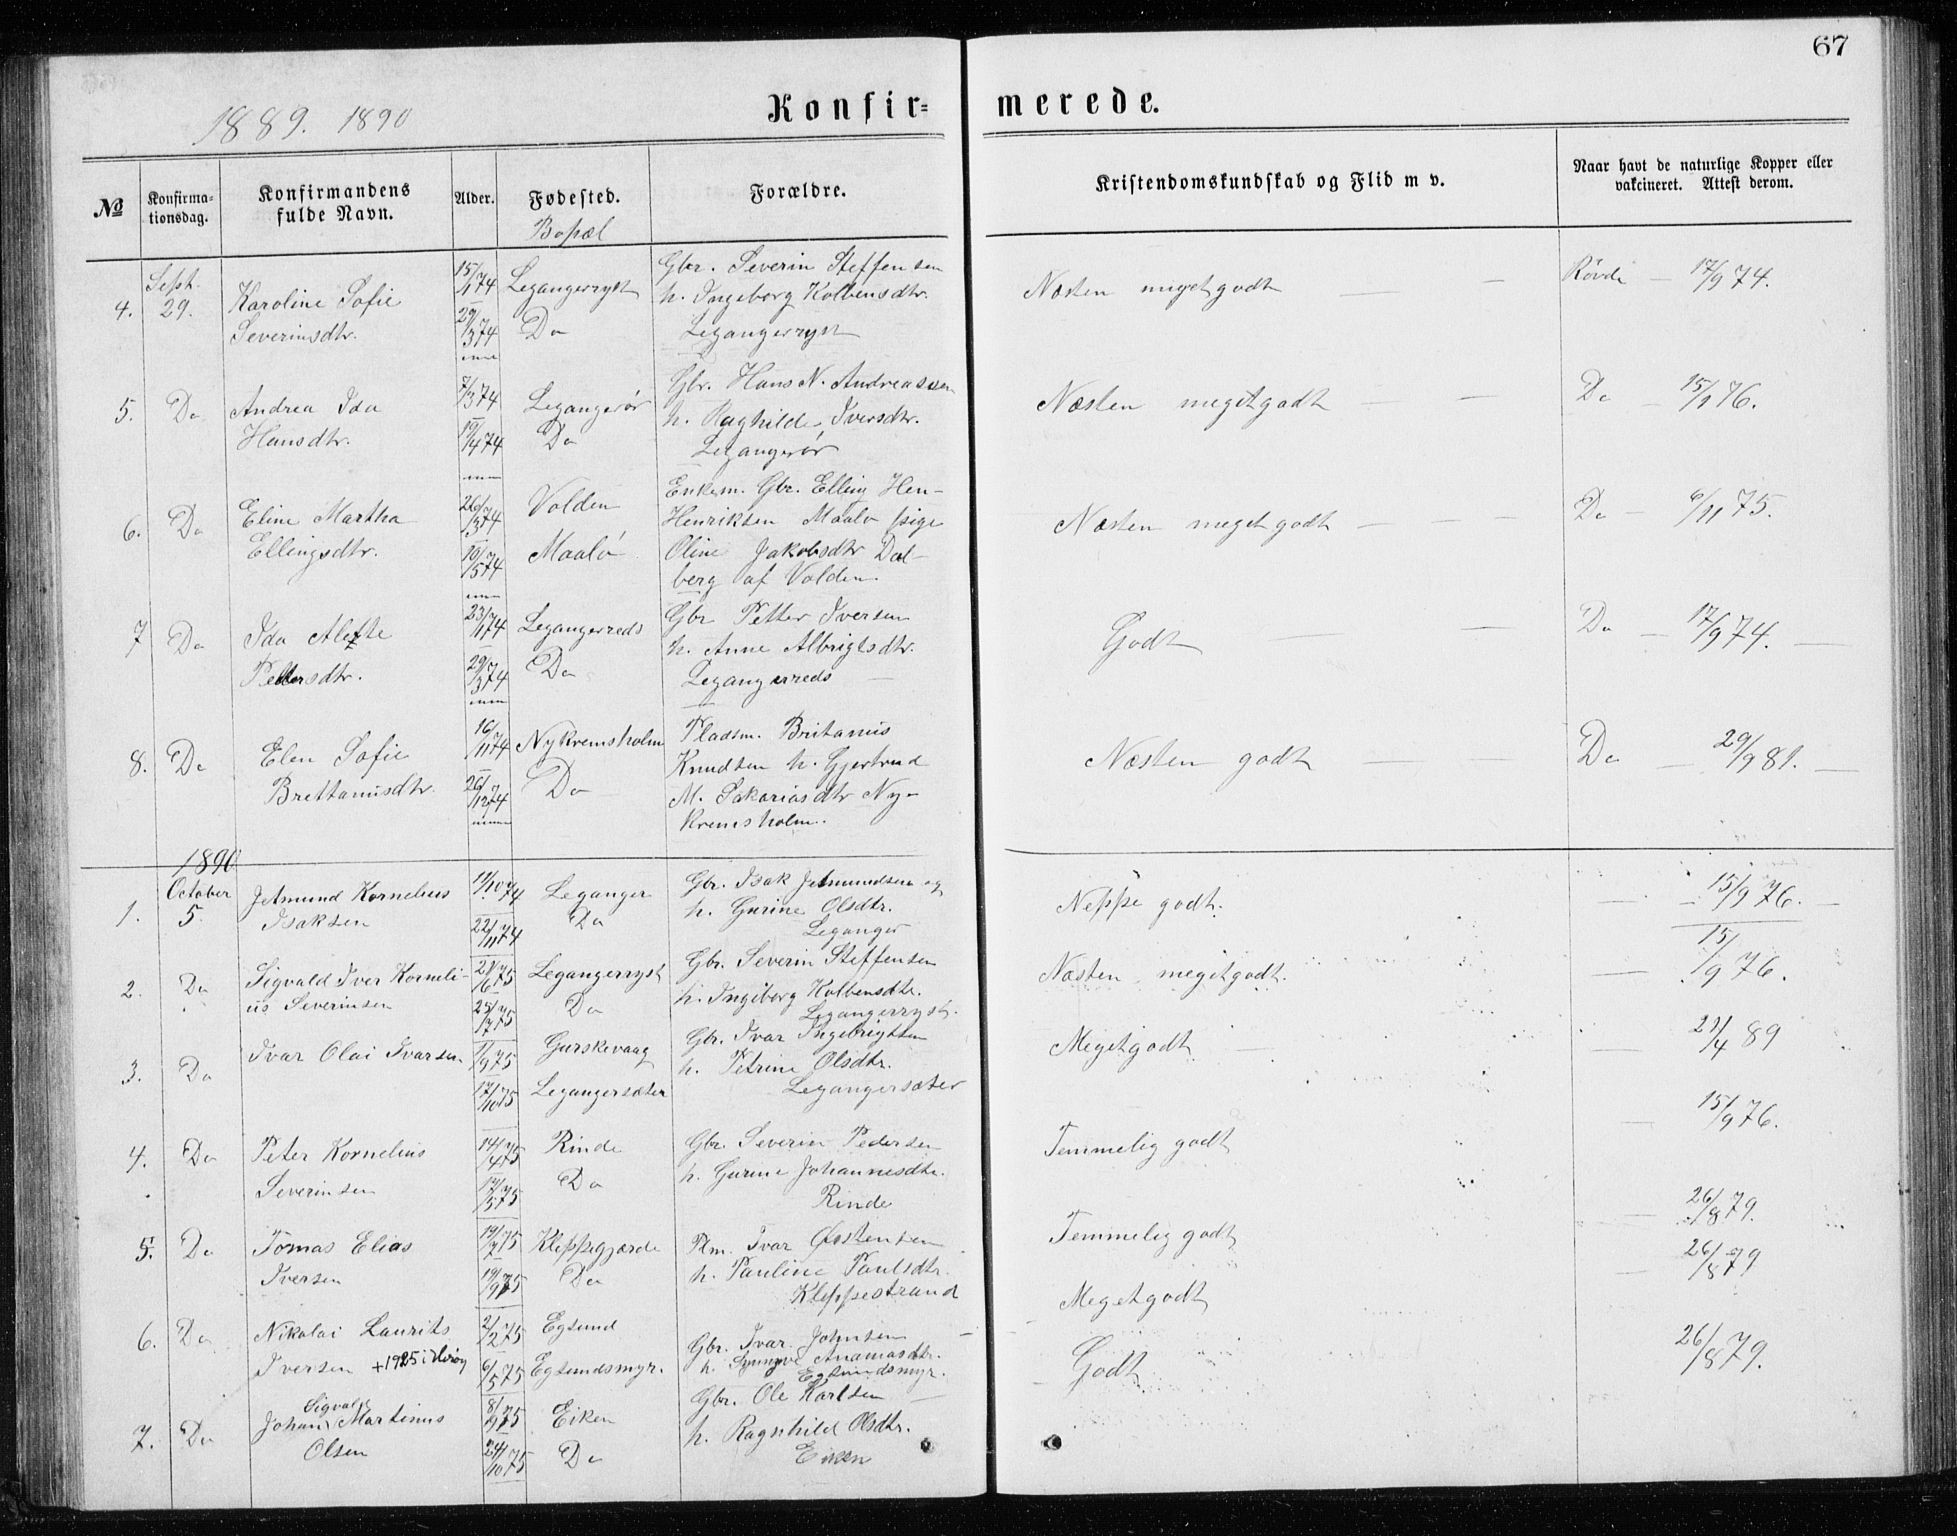 67
1889. 1890
Konfir= merede.
№ Konfirma=tionsdag. Konfirmandens fulde Navn. Alder. Fødested. Forældre. Kristendomskundskab og Flid m v. Naar havt de naturlige Kopper eller vakcineret. Attest derom.
Bopæl
Sept. 15/1 74 Legangerryst Gbr. Severin Steffensen
4. 29. Karoline Sofie h. Ingeborg Kolbensdtr. Næsten megetgodt Røvde 17/9 74.
Severinsdtr. 29/3 74 Do Legangerryst
7/3 74 Gbr. Hans N. Andreassen
5. Do Andrea Ida Legangerør h. Raghilde Iversdtr. Næsten megetgodt Do 15/1 76.
Hansdtr. 19/4 74 Do Legangerør
Enkem. Gbr. Elling Hen-
6. Do Eline Martha 26/3 74 Volden Henriksen Maalø pige Næsten megetgodt Do 6/11 75.
Ellingsdtr. 10/5 74 Maalø Oline Jakobsdtr Dal-
berg af Volden.
23/1 74 Legangerreds Gbr Petter Iversen
7 Do Ida Alette h. Anne Albrigtsdtr. Godt Do 17/9 74.
Pettersdtr. 29/3 74 Do Legangerreds
16/11 74 Nykremsholm Pladsm. Britanus
8. Do Elen Sofie Knudsen h. Gjertrud Næsten godt Do 29/9 81.
Brettanusdtr. 26/12 74 Do M. Sakariasdtr Ny-
kremsholm.
1890
October 11/10 74 Leganger Gbr. Isak Jetmundsen og
1. 5. Jetmund Kornelius Isaksen 22/11 74 Do h. Gurine Olsdtr. Neppe godt. 15/9 76.
Leganger
2. Do Sigvald Iver Korneli- 21/6 75 Legangerryst Gbr. Severin Steffensen Næsten megetgodt. 15/9 76.
us Severinsen 25/7 75 Do h. Ingeborg Kolbensdtr.
Legangerryst.
3. Do Ivar Olai Ivarsen 1/9 75 Gurskevaag Gbr. Ivar Ingebrigtsen Megetgodt 21/4 89
17/10 75 Legangersæter h. Petrine Olsdtr.
Legangersæter
4. Do Peter Kornelius 14/4 75 Rinde Gbr. Severin Pedersen Temmelig godt 15/9 76.
Severinsen 17/5 75 Do h. Gurine Johannesdtr.
Rinde
5. Do Tomas Elias 19/7 75 Kleppegjærde Plm. Ivar Østensen Temmelig godt 26/8 79.
Iversen 19/9 75 Do h. Pauline Paulsdtr.
Kleppestrand
6. Do Nikolai Laurits 2/2 75 Egsund Gbr. Ivar Johnsen Megetgodt 26/8 79
Iversen +1925 i Herøy 6/5 75 Egsundsmyr. h. Synnøve Ananiasdtr.
Egsundsmyr.
Sigvald
7. Do Johan Martinus 8/9 75 Eiken Gbr. Ole Karlsen Godt 26/8 79.
Olsen 24/10 75 Do h. Ragnhild Olsdtr.
Eiken